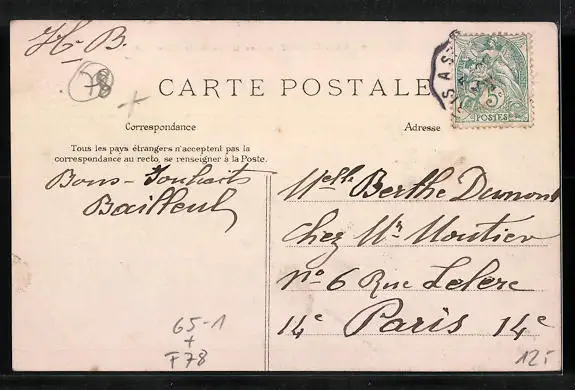 H. B.
78
CARTE POSTALE
Correspondance
Adresse
Tous les pays étrangers n'acceptent pas la
correspondance au recto, se renseigner à la Poste.
5
POSTES
Bons-Souhaits
Bailleul
Melle Berthe Dumont
chez Mr Moutier
No 6 Rue Leclerc
14e Paris 14e
65-1
+
F78
12